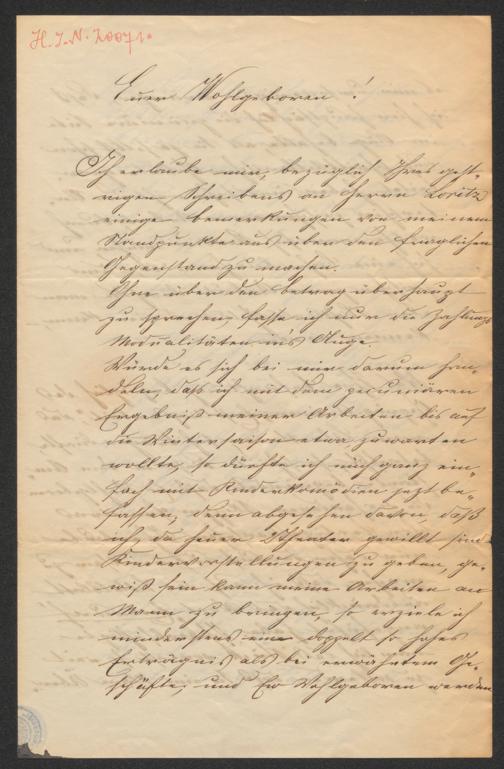 H. I. N. 20071.
Euer Wohlgeboren!
Ich erlaube mir, bezüglich Ihres gest-
rigen Schreibens an Herrn Loritz
einige Bemerkungen von meinem
Standpunkte aus über den fraglichen
Gegenstand zu machen.
Ohne über den Betrag überhaupt
zu sprechen, fasse ich nur die Zahlungs
Modalitäten in's Auge.
Würde es sich bei mir darum han-
deln, dass ich mit dem pecuniären
Ergebniß meiner Arbeiten bis auf
die Wintersaison etwa zuwarten
wollte, so dürfte ich mich ganz ein-
fach mit Kinderkomödien jetzt be-
fassen; denn abgesehen davon, daß
ich, da heuer Theater gewillt sind
Kindervorstellungen zu geben, ge-
wiß sein kann meine Arbeiten an
Mann zu bringen, so erziele ich
mindestens ein doppelt so hohes
Erträgnis als bei erwähntem Ge-
schäfte; und Ew Wohlgeboren werden